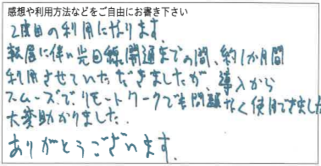 感想や利用方法などをご自由にお書き下さい
2度目の利用になります。
転居に伴い光回線開通までの間、約1か月間
利用させていただきましたが、導入から
スムーズで、リモートワークでも問題なく使用できました
大変助かりました。
ありがとうございます。